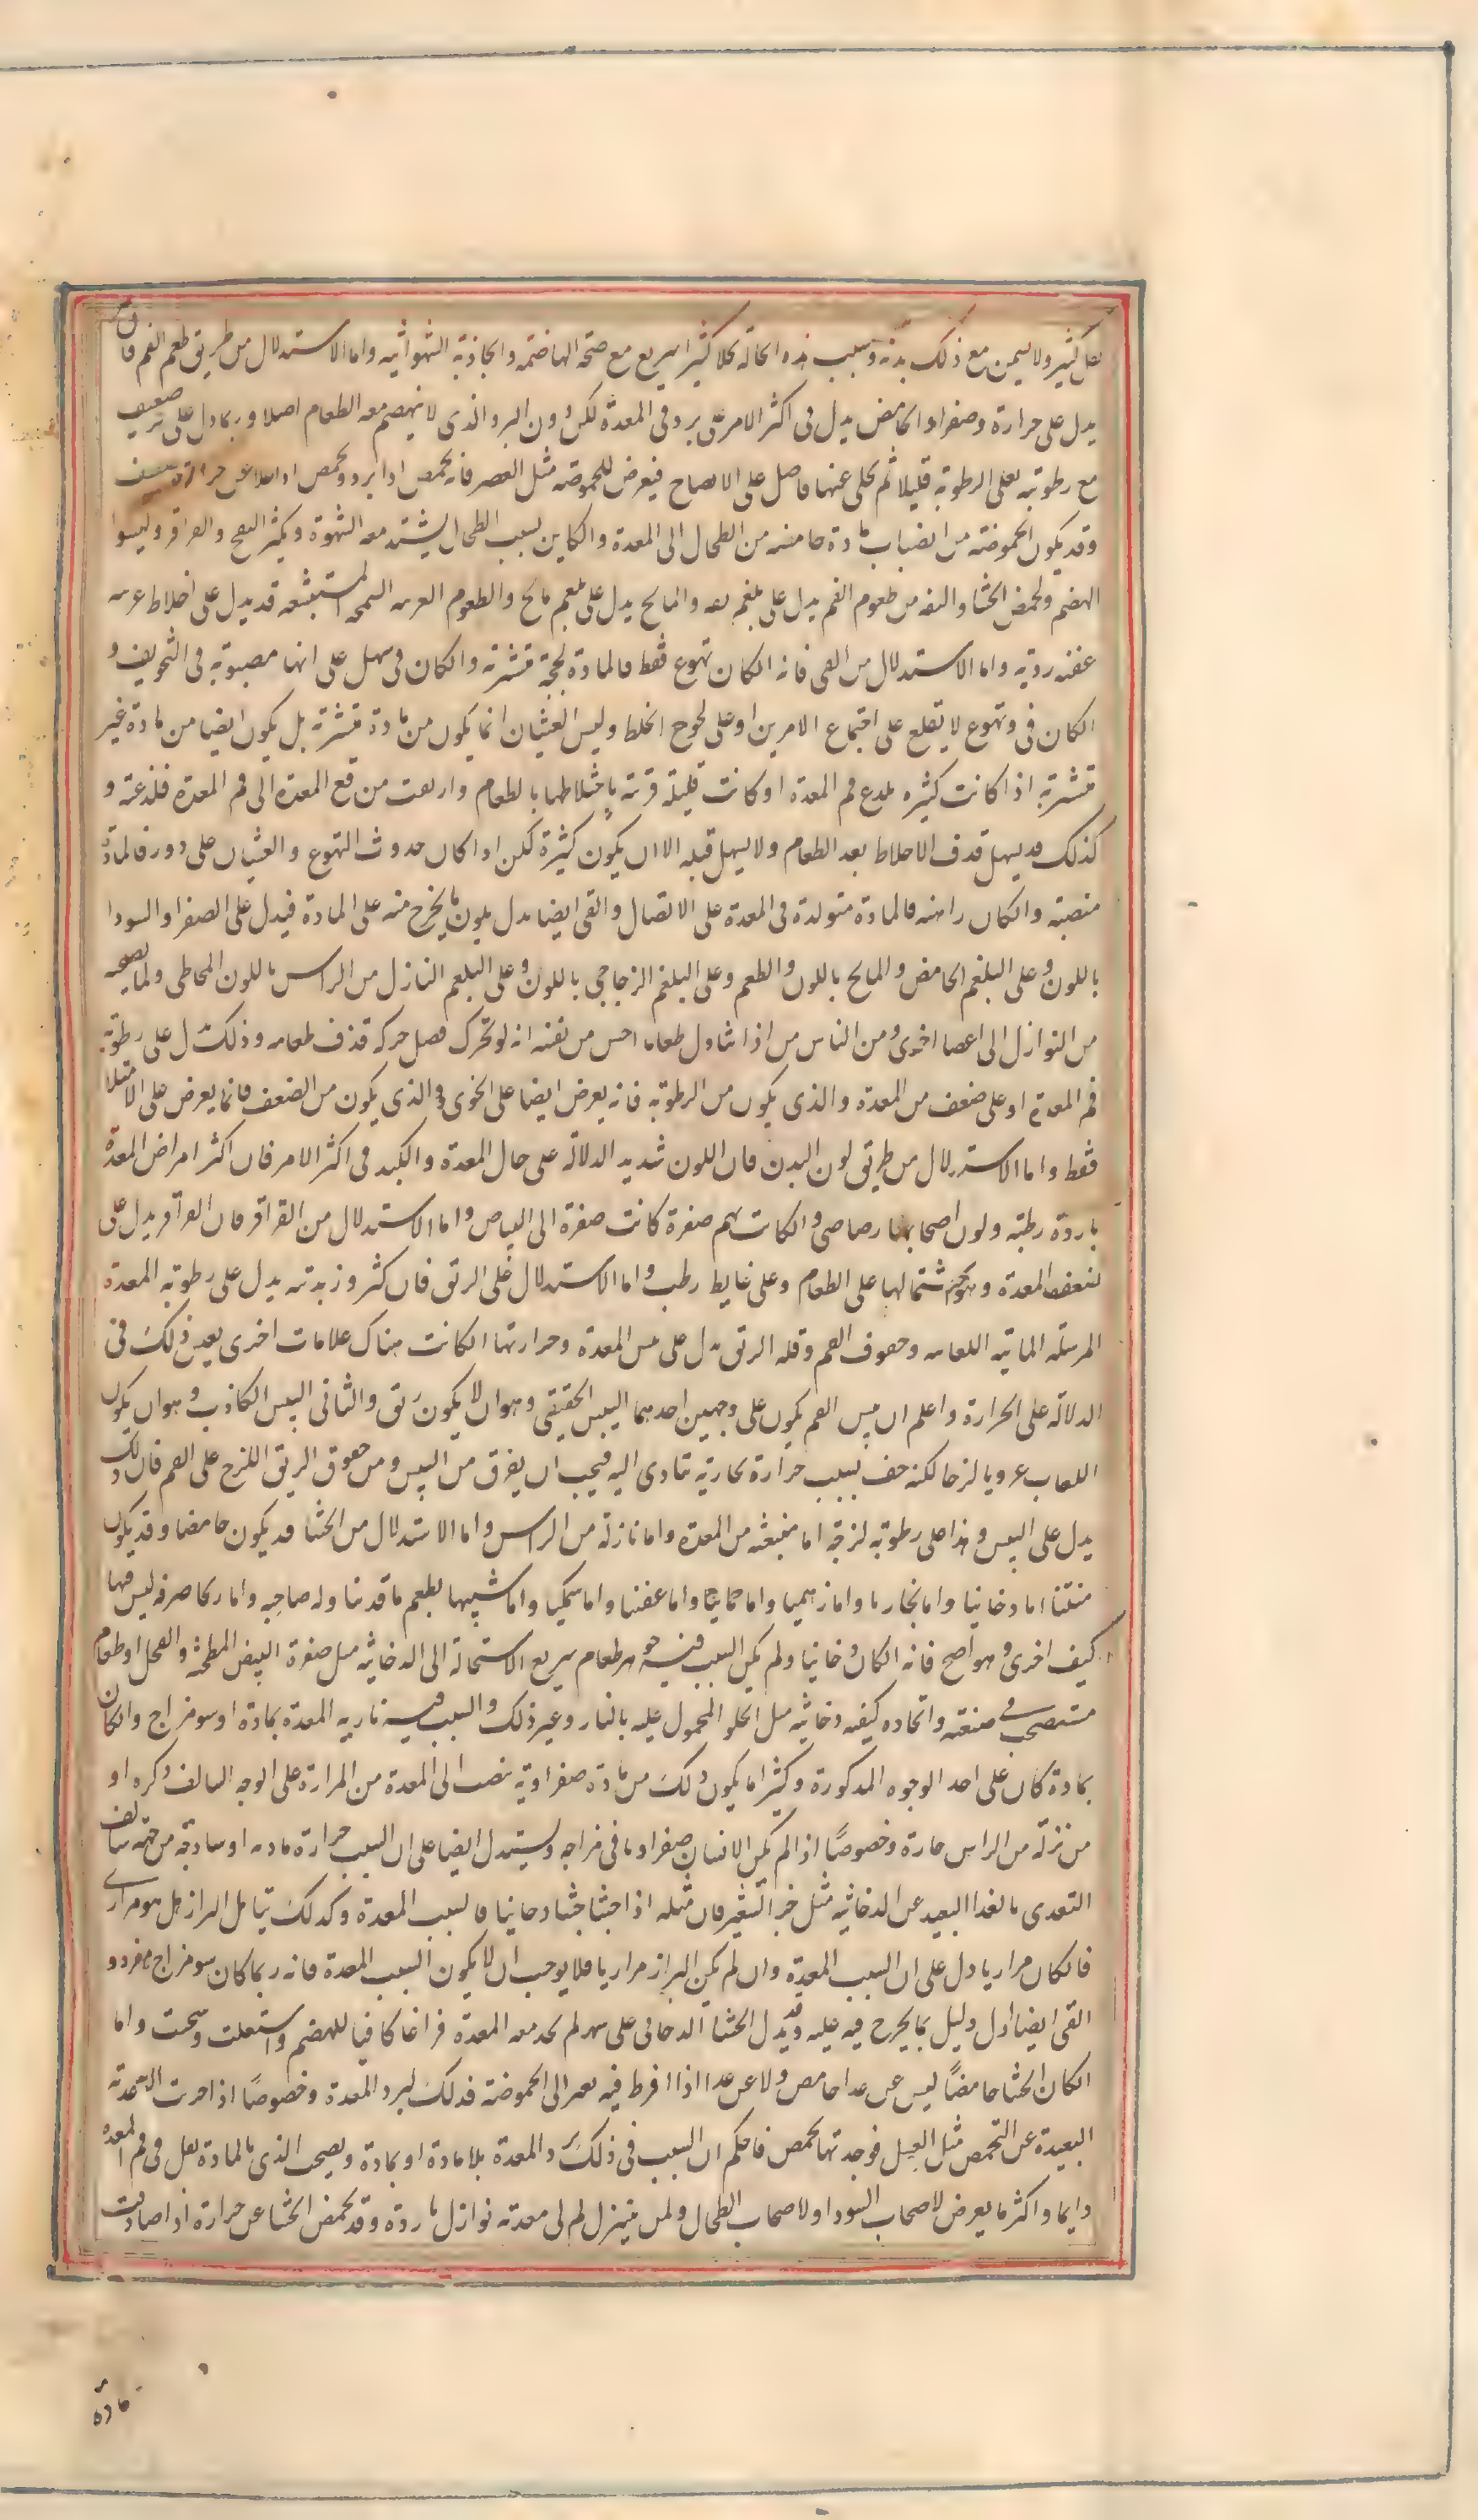 كثير ولا يسمن مع ذلك بدنه وسبب هذه الحالة تحلل كثير سريع مع صحة الهاضمة والجاذبة الشهوانيه واما الاستدلال من طريق طعم الفم فان
يدل على حرارة وصفراو الحامض يدل فى اكثر الامر على برد فى المعدة لكن دون البرد الذى لا ينهضم معه الطعام اصلا وربما دل على ضعيف
مع رطوبة يغلى الرطوبة قليلا ثم يخلى عنها فيعرض للحموضة مثل العصير فانه يحمض اذا برد ويحمض اذا حرارة ضعيف
وقد يكون الحموضة من انصباب مادة حامضه من الطحال الى المعدة والكاين بسبب الطحال يشتد معه الشهوة ويكثر النفخ والقراقر
الهضم ويحمض الجشا والتفه من طعوم الفم يدل على بلغم تفه والمالح يدل على بلغم مالح والطعوم الغريبه السمجه المستبشعه قد يدل على اخلاط غريبه
عفنه رديه واما الاستدلال من القى فانه الكان تهوع فقط فالمادة لحجة متشربة والكان قى سهل على انها مصبوبة فى التجويف و
الكان قى وتهوع لا تقلع على اجتماع الامرين او على لحوج الخلط وليس الغثيان انما يكون من مادة متشربة بل يكون ايضا من مادة غير
متشربة اذا كانت كثيره تلدع فم المعدة او كانت قليلة قوية باختلاطها بالطعام وارتفعت من قعر المعدة الى فم المعدة فلذعته و
كذلك قد يسهل قذف الاخلاط بعد الطعام ولا يسهل قبله الا ان يكون كثيرة لكن اذا كان حدوث التهوع والغثيان على دور فالمادة
منصبة والكان راهنه فالمادة متولدة فى المعدة على الاتصال والقى ايضا يدل بلون ما يخرج منه على المادة فيدل على الصفرا والسودا
باللون وعلى البلغم الحامض والمالح باللون والطعم وعلى البلغم الزجاجى باللون وعلى البلغم النازل من الراس باللون المخاطى
من النوازل الى اعضا اخرى ومن الناس من اذا تناول طعاما احس من نفسه انه لو تحرك فضل حركة قذف طعامه وذلك يدل على رطوبة
فم المعدة او على ضعف من المعدة والذى يكون من الرطوبة فانه يعرض ايضا على الخوى والذى يكون من الضعف فانما يعرض على الامتلا
فقط واما الاستدلال من طريق لون البدن فان اللون شديد الدلالة على حال المعدة والكبد فى اكثر الامر فان اكثر امراض المعدة
باردة رطبة ولون اصحابها رصاصى والكانت بهم صفرة كانت صفرة الى البياض واما الاستدلال من القراقر فان القراقر يدل على
ضعف المعدة وسوء اشتمالها على الطعام وعلى غايط رطب واما الاستدلال على الريق فان كثر وزبدته يدل على رطوبة المعدة
المرسلة المائية اللعابيه وجفوف الفم وقلة الريق يدل على يبس المعدة وحرارتها الكانت هناك علامات اخرى بعد ذلك فى
الدلالة على الحرارة واعلم ان يبس الفم يكون على وجهين احدهما اليبس الحقيقى وهو ان لا يكون ريق والثانى اليبس الكاذب وهو ان يكون
اللعاب عرويا لزجا لكنه جف بسبب حرارة بخارية تتادى اليه فيجب ان يفرق من اليبس ومن جفوف الريق اللزج على الفم فان ذلك
يدل على اليبس وهذا على رطوبة لزجة اما منبعثه من المعدة واما نازلة من الراس واما الاستدلال من الجشا قد يكون حامضا وقد يكون
منتنا اما دخانيا واما بخاريا واما زهميا واما حمائيا واما عفنا واما سمكيا واما شبيها بطعم ما قد تناوله صاحبه واما ريحا صرفه ليس فيها
كيف اخرى وهو اصح فانه الكان دخانيا ولم يكن السبب فيه جوهر طعام سريع الاستحالة الى الدخانية مثل صفرة البيض المطجنة والفجل او طعام
مستصحب فى صنعته واتخاذه كيفيه دخانية مثل الحلو المعمول عليه بالنار وغير ذلك والسبب فيه ناريه المعدة بمادة او سو مزاج والكان
بمادة كان على احد الوجوه المذكورة وكثيرا ما يكون ذلك من مادة صفراوية تنصب الى المعدة من المرارة على الوجه السالف ذكره او
من نزلة من الراس حارة وخصوصًا اذا لم يكن الانسان صفراويا فى مزاجه ويستدل ايضا على ان السبب حرارة ماديه او ساذجة من جهة سالف
التغذى بالغذا البعيد عن الدخانيه مثل خبز الشعير فان مثله اذا جشا جشا دخانيا فالسبب المعدة وكذلك يتامل البراز هل هو مرارى
فالكان مراريا دل على ان السبب المعدة وان لم يكن البراز مراريا فلا يوجب ان لا يكون السبب المعدة فانه ربما كان سو مزاج مفرد و
القى ايضا اول دليل بما يخرج فيه عليه وقد يدل الجشا الدخانى على سهر لم يجد معه المعدة فراغا كافيا للهضم واشتعلت وسخنت واما
الكان الجشا حامضًا ليس عن غذا حامض ولا عن غذا اذا افرط فيه تغير الى الحموضة فذلك لبرد المعدة وخصوصًا اذا جربت الاغذية
البعيدة عن التحمض مثل العسل فوجدتها تحمض فاحكم ان السبب فى ذلك برد المعدة بلا مادة او بمادة ويصحب الذى بالمادة ثقل فى فم المعدة
دايما واكثر ما يعرض لاصحاب السودا ولاصحاب الطحال ولمن ينزل الى معدته نوازل باردة وقد يحمض الجشا عن حرارة اذا صادفت
مادة